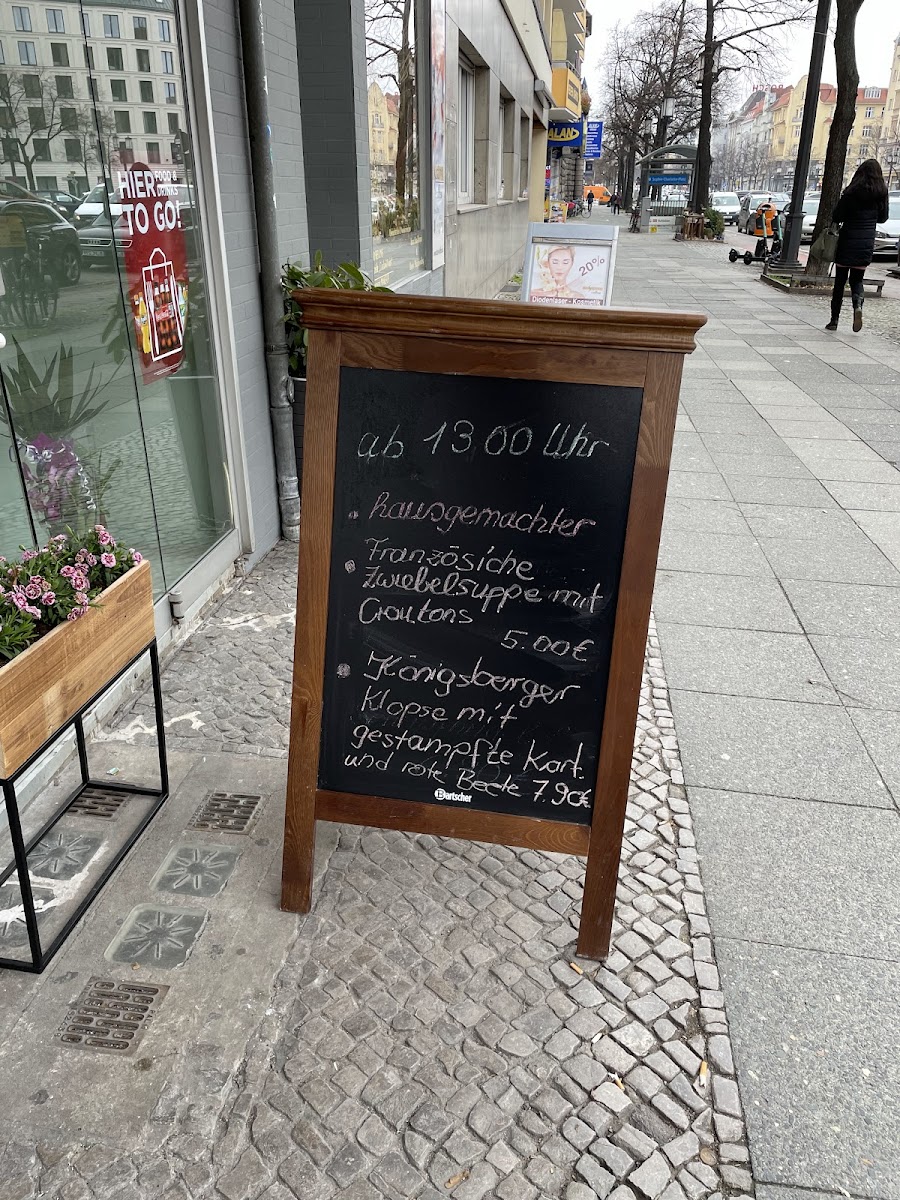 HIER FOOD & DRINKS
TO GO!
ALAND
20%
Diodenlaser - Kosmetik
ab 13.00 Uhr
• hausgemachter
• Französiche
Zwiebelsuppe mit
Croutons
5.00€
• Königsberger
Klopse mit
gestampfte Kart.
und rote Beete 7.90€
Bartscher